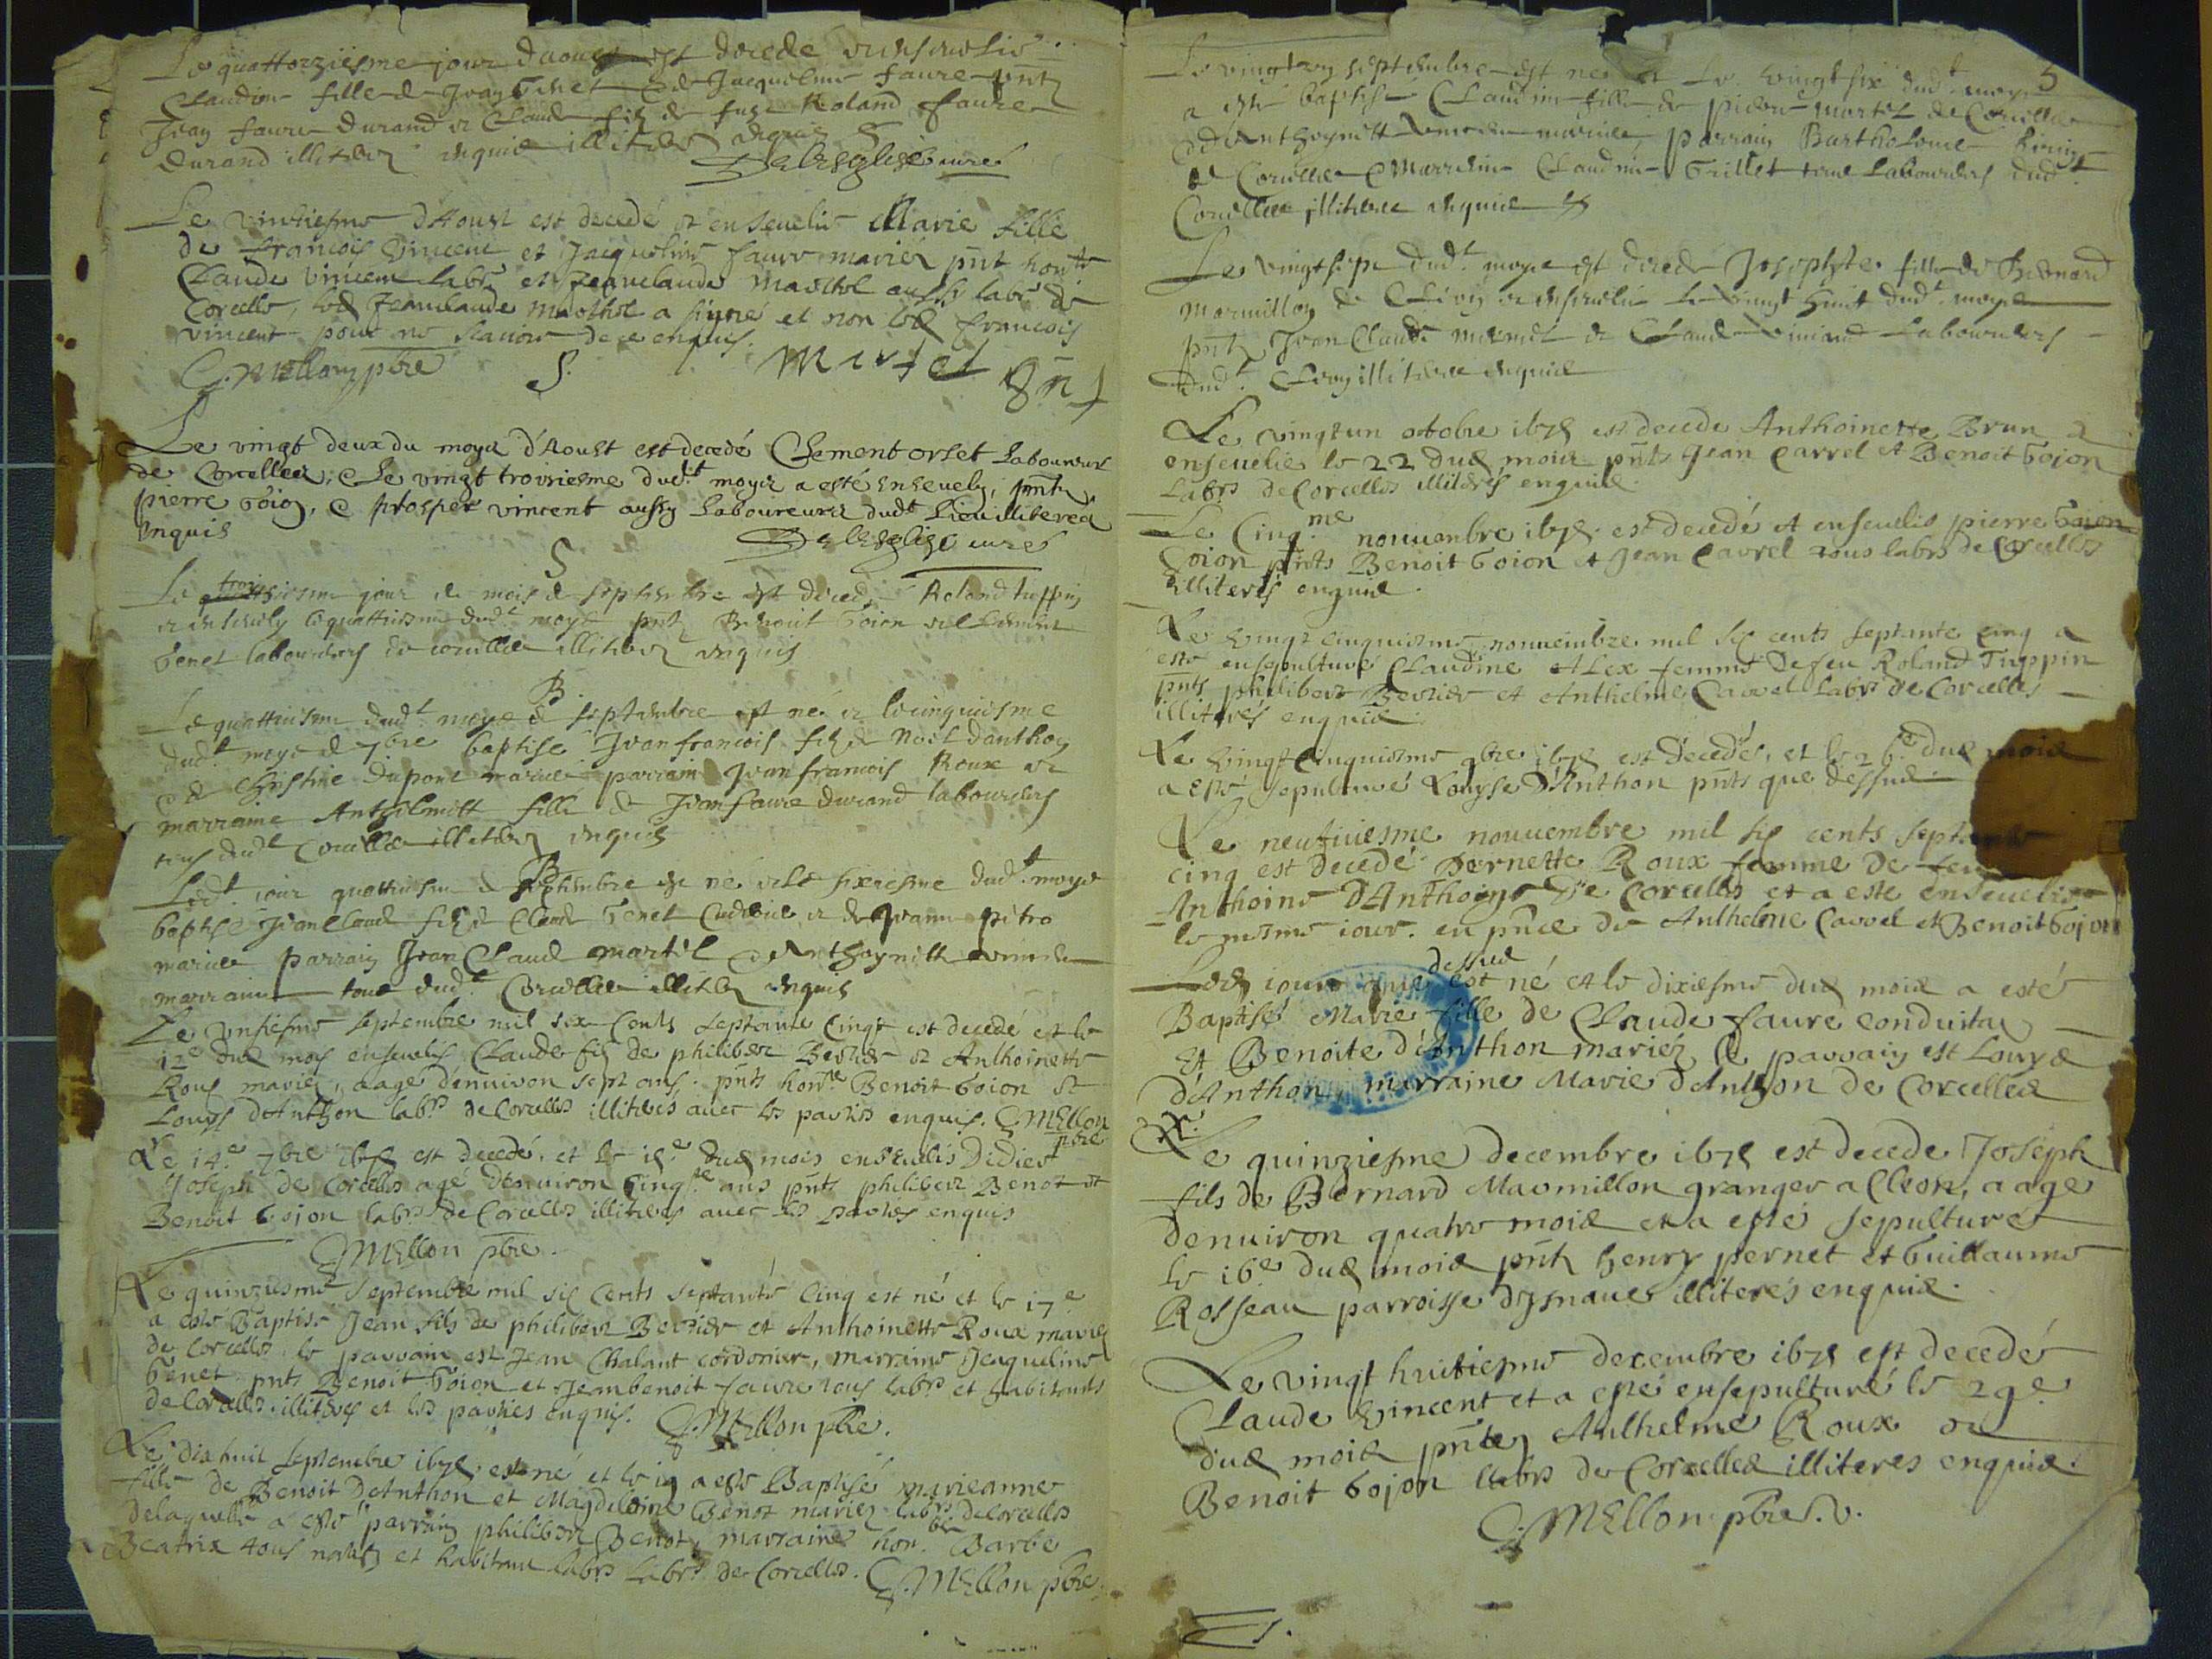 Le quattorziesme jour daoust est decede ensevelie
Claudine fille de Jean Genet & de Jacqueline Faure pntz
Jean Faure Durand et Claude filz de fuz Roland Faure
Durand illiterez enquis
Delesglise curé
Le vintiesme d'Aoust est decedé et ensevelie Marie fille
de francois Vincent et Jacqueline faure mariéz pnt
Claude Vincent labr et Jeanclaude Marthel aussy labr de
Corcelle, led Jeanclaude Marthel a signé et non led francois
vincent pour ne scavoir de ce enquis.
C. Mellon pbre S. Martel
Le vingt deux du moys d'Aoust est decedé Clement orset Laboureur
de Corcelles, & Le vingt troisiesme dudt moys a esté ensevely, pntz
pierre Goion, & prosper vincent aussy Laboureurs dudt Lieu illiteres
Enquis
Delesglise curé
S
Le troisiesme jour de mois de septembre est decedé Roland tuppin
et ensevely le quattriesme dudt moys pntz Benoit Goion et Clement
Genet laboureurs de corcelles illiterez enquis
B.
Le quattriesme dudt moys de septembre est né et le cinquiesme
dudt moys de 7bre baptise Jean francois filz de Noel Danthon
& de Christine dupont mariés parrain Jean francois Roux et
marraine Anthelmette fille de Jean faure durand laboureurs
tous dudt Corcelles illiterez enquis
B
Ledt jour quattriesme de septembre est né et le sixiesme dudt moys
baptisé Jean Claude filz de Claude Genet et de Jeanne pitro
mariés parrain Jean Claude martel & Anthoynette vincent
marraine tous dudt Corcelles illiterez enquis
Le unsiesme septembre mil six Cents septante Cinqt est decedé et le
12e dud mois ensevelis Claude fils de philibert Berrier et Anthoinette
Roux mariéz, aagé d'environ sept ans. pnts honble Benoit Goion et
Louys d'Anthon labrs de Corcelles illiterés avec les parties enquis. C. MEllon
pbre
Le 14e 7bre 1675 est decedé, et le 15e dud mois ensevelis Didier
Joseph de Corcelles agé d'environ Cinqte ans pnts philibert Benot et
Benoit Gojon labrs de Corcelles illiteres avec les parties enquis
C. MEllon pbre.
Le quinziesme septembre mil six Cents septante Cinq est né et le 17e
a esté Baptisé Jean fils de philibert Berrier et Anthoinette Roux mariéz
de Corcelles le parrain est Jean Chalant cordonier, marraine Jacqueline
Genet pnts Benoit Goion et Jeanbenoit faure tous labrs et habitants
de Corcelles illiterés et les parties enquis. C. MEllon pbre.
Le dixhuit septembre 1675 est né et le 19 a esté Baptisé marieanne
fille de Benoit D'Anthon et Magdeleine Benot mariéz labrs de Corcelles
de laquelle a esté parrain philibert Benot, marraine honble Barbe
Beatrix tous natifs et habitant labrs de Corcelles. C. MEllon pbre.
5
Le vingt cinq septembre est née et Le vingt six dudt moys
a esté baptisé Claudine fille de pierre martel de Corcelles
& d'Anthoynette vincent mariés, parrain Bartholome
de Corcelles & Marraine Claudine Grillet tous Laboureurs dudt
Corcelles illiteres enquis
Le vingt sept dudt moys est decedé Josephte fille de Bernard
Marmillon de Cléon et ensevelie le vingt huit dudt moys
pntz Jean Claude et Claude vincent Laboureurs
dudt Cléon illiteres enquis
Le vingt un octobre 1675 est decede Anthoinette Brun &
ensevelie le 22 dud mois pnts Jean Carrel et Benoit Goion
Labrs de Corcelles illiterés enquis.
Le Cinqme novembre 1675 est decedé et ensevelis pierre Goion
Goion pnts Benoit Goion et Jean Carrel tous labrs de Corcelles
illiterés enquis.
Le vingt cinquiesme novembre mil six cents septante cinq a
esté ensepulture Claudine Alex femme de feu Roland Tuppin
pnts philibert Berrier et Anthelme Carrel Labrs de Corcelles
illiterés enquis.
Le vingt cinquiesme 9bre 1675 est decedés, et le 26e dud mois
a esté sepulturé Louyse D'Anthon pnts que dessus
Le neufviesme novembre mil six cents septante
cinq est decedé Pernette Roux femme de feu
Anthoine D'Anthoine de Corcelles et a esté ensevelie
le mesme jour. en pnce de Anthelme Carrel et Benoit Gojon
Led jour que dessus est né et le dixiesme dud mois a esté
Baptisé Marie fille de Claude faure conduitau
et Benoite d'Anthon mariéz, le parrain est Louys
d'Anthon, marraine Marie d'Anthon de Corcelles
Le quinziesme decembre 1675 est decedé Joseph
fils de Bernard Marmillon granger a Cleon, aagé
denviron quatre mois et a esté sepulturé
le 16e dud mois pntz henry pernet et Guillaume
Rosseau parroisse d'Isnaves illiterés enquis.
Le vingt huitiesme decembre 1675 est decedés
Claude vincent et a esté ensepulturé le 29e
dud mois pntes Anthelme Roux et
Benoit Gojon labrs de Corcelles illiteres enquis.
C. MEllon pbre. v.